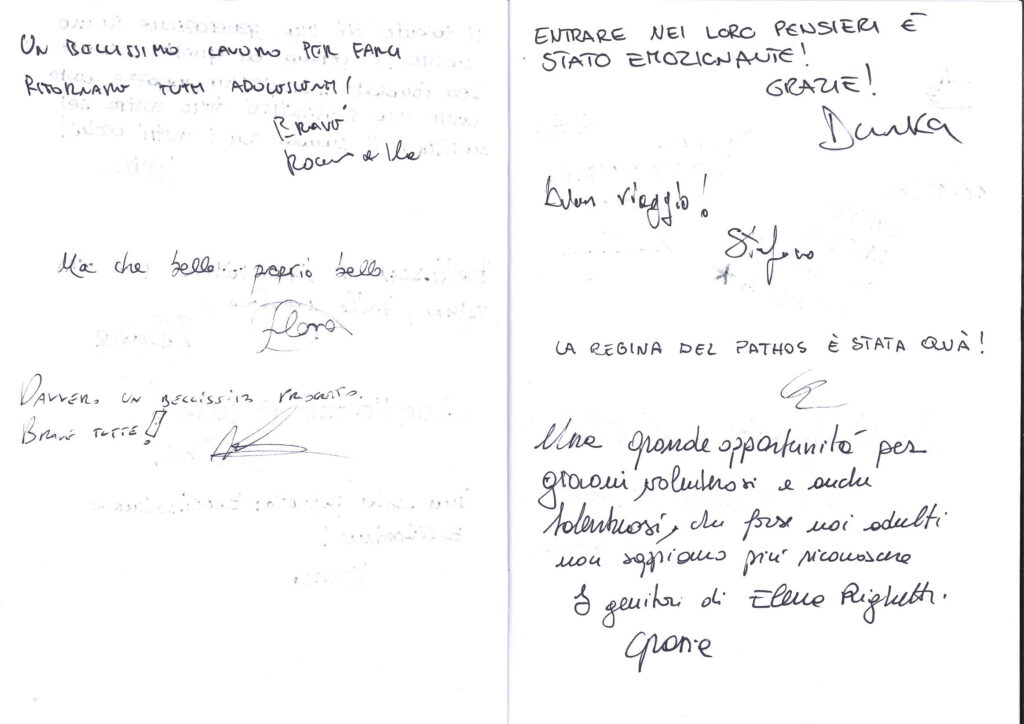 UN BELLISSIMO LAVORO PER FARCI
RITORNARE TUTTI ADOLESCENTI!
BRAVE
Ma che bello... proprio bello...
Elena
DAVVERO UN BELLISSIMO PROGETTO.
BRAVE TUTTE!
ENTRARE NEI LORO PENSIERI È
STATO EMOZIONANTE!
GRAZIE!
Dunka
Buon viaggio!
Stefano
LA REGINA DEL PATHOS È STATA QUÀ!
Una grande opportunità per
giovani volenterosi e anche
talentuosi, che forse noi adulti
non sappiamo più riconoscere
I genitori di Elena Righetti.
Grazie